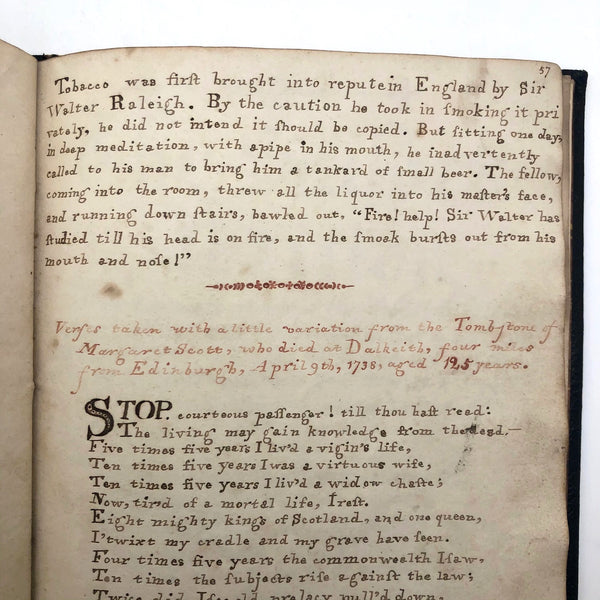 57
Tobacco was firſt brought into reputein England by Sir
Walter Raleigh. By the caution he took in ſmoking it pri
vately, he did not intend it ſhould be copied. But ſitting one day,
in deep meditation, with a pipe in his mouth, he inadvertently
called to his man to bring him a tankard of ſmall beer. The fellow,
coming into the room, threw all the liquor into his maſter's face,
and running down ſtairs, bawled out, "Fire! help! Sir Walter has
ſtudied till his head is on fire, and the ſmoak burſts out from his
mouth and noſe!"
Verſes taken with a little variation from the Tombſtone of
Margaret Scott, who died at Dalkeith, four miles
from Edinburgh, April 9th, 1738, aged 125 years.
STOP, courteous paſſenger! till thou haſt read:
The living may gain knowledge from the dead.—
Five times five years I liv'd a vigin's life,
Ten times five years I was a virtuous wife,
Ten times five years I liv'd a widow chaſte;
Now, tir'd of a mortal life, I reſt.
Eight mighty kings of Scotland, and one queen,
I'twixt my cradle and my grave have ſeen.
Four times five years the commonwealth I ſaw,
Ten times the ſubjects riſe againſt the law;
Twice did I ſee old prelacy pull'd down,